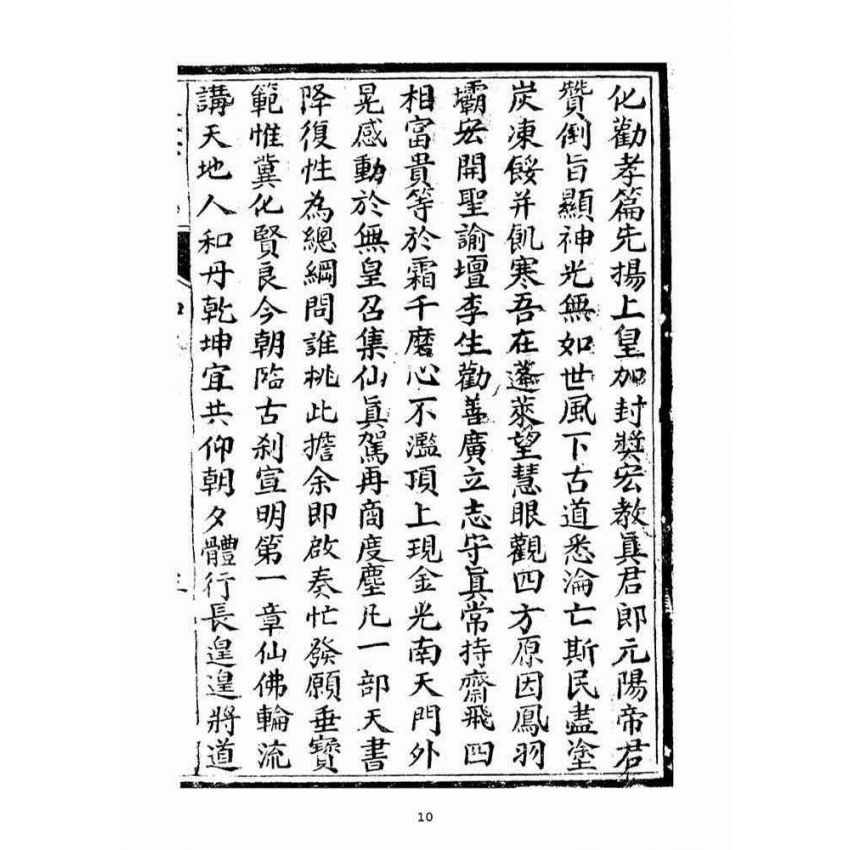 化勸孝篇先揚上皇加封獎宏教真君郎元陽帝君
贊倒旨顯神光無如世風下古道悉淪亡斯民盡塗
炭凍餒并飢寒吾在蓬萊望慧眼觀四方原因鳳羽
壩宏開聖諭壇李生勸善廣立志守真常持齋飛四
相富貴等於霜千磨心不濫頂上現金光南天門外
晃感動於無皇召集仙真駕再商度塵凡一部天書
降復性為總綱問誰桃此擔余即啟奏忙發願垂寶
範惟冀化賢良今朝臨古剎宣明第一章仙佛輪流
講天地人和丹乾坤宜共仰朝夕體行長遑遑將道
10